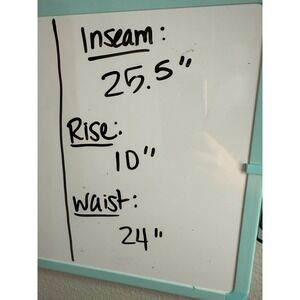 Inseam:
25.5"
Rise:
10"
waist:
24"